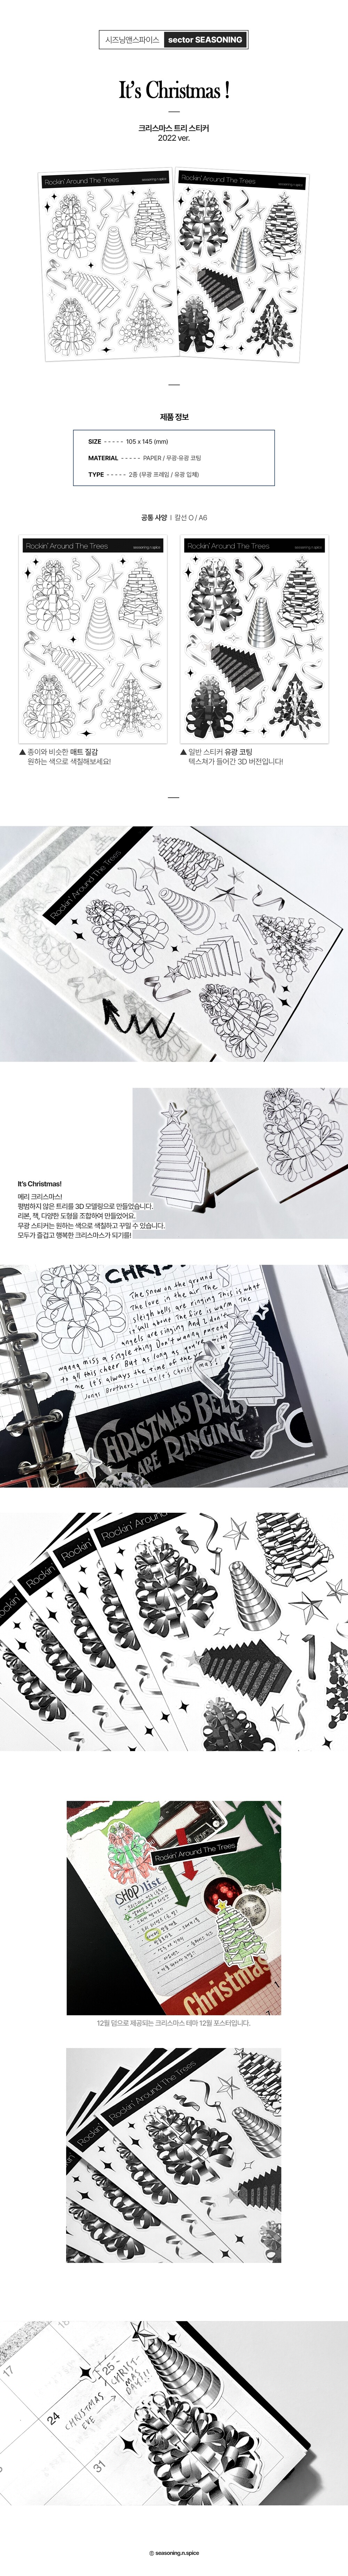 시즈닝앤스파이스 sector SEASONING
It's Christmas !
크리스마스 트리 스티커
2022 ver.
Rockin' Around The Trees seasoning.n.spice
Rockin' Around The Trees seasoning.n.spice
제품 정보
SIZE - - - - - 105 x 145 (mm)
MATERIAL - - - - - PAPER / 무광·유광 코팅
TYPE - - - - - 2종 (무광 프레임 / 유광 입체)
공통 사양 I 칼선 O / A6
Rockin' Around The Trees seasoning.n.spice
Rockin' Around The Trees seasoning.n.spice
▲ 종이와 비슷한 매트 질감
원하는 색으로 색칠해보세요!
▲ 일반 스티커 유광 코팅
텍스쳐가 들어간 3D 버전입니다!
Rockin' Around The Trees
It's Christmas!
메리 크리스마스!
평범하지 않은 트리를 3D 모델링으로 만들었습니다.
리본, 책, 다양한 도형을 조합하여 만들었어요.
무광 스티커는 원하는 색으로 색칠하고 꾸밀 수 있습니다.
모두가 즐겁고 행복한 크리스마스가 되기를!
CHRISTMAS
The snow on the ground
The love in the air The
sleigh bells are ringing This is what
it's all about The fire is warm The
angels are singing And I don't
wanna miss a single thing Don't wanna
to all this cheer But as long as you're
me It's always the time of the
Jonas Brothers - Like It's Christmas
CHRISTMAS BELLS
ARE RINGING
Rockin'
Rockin'
Rockin'
Rockin' Around
Rockin' Around The Trees
SHOP list
Christmas
12월 덤으로 제공되는 크리스마스 테마 12월 포스터입니다.
Rockin' Around The Trees
17
18
24
CHRISTMAS
EVE
25
CHRIST-
MAS
DAY!!
31
© seasoning.n.spice